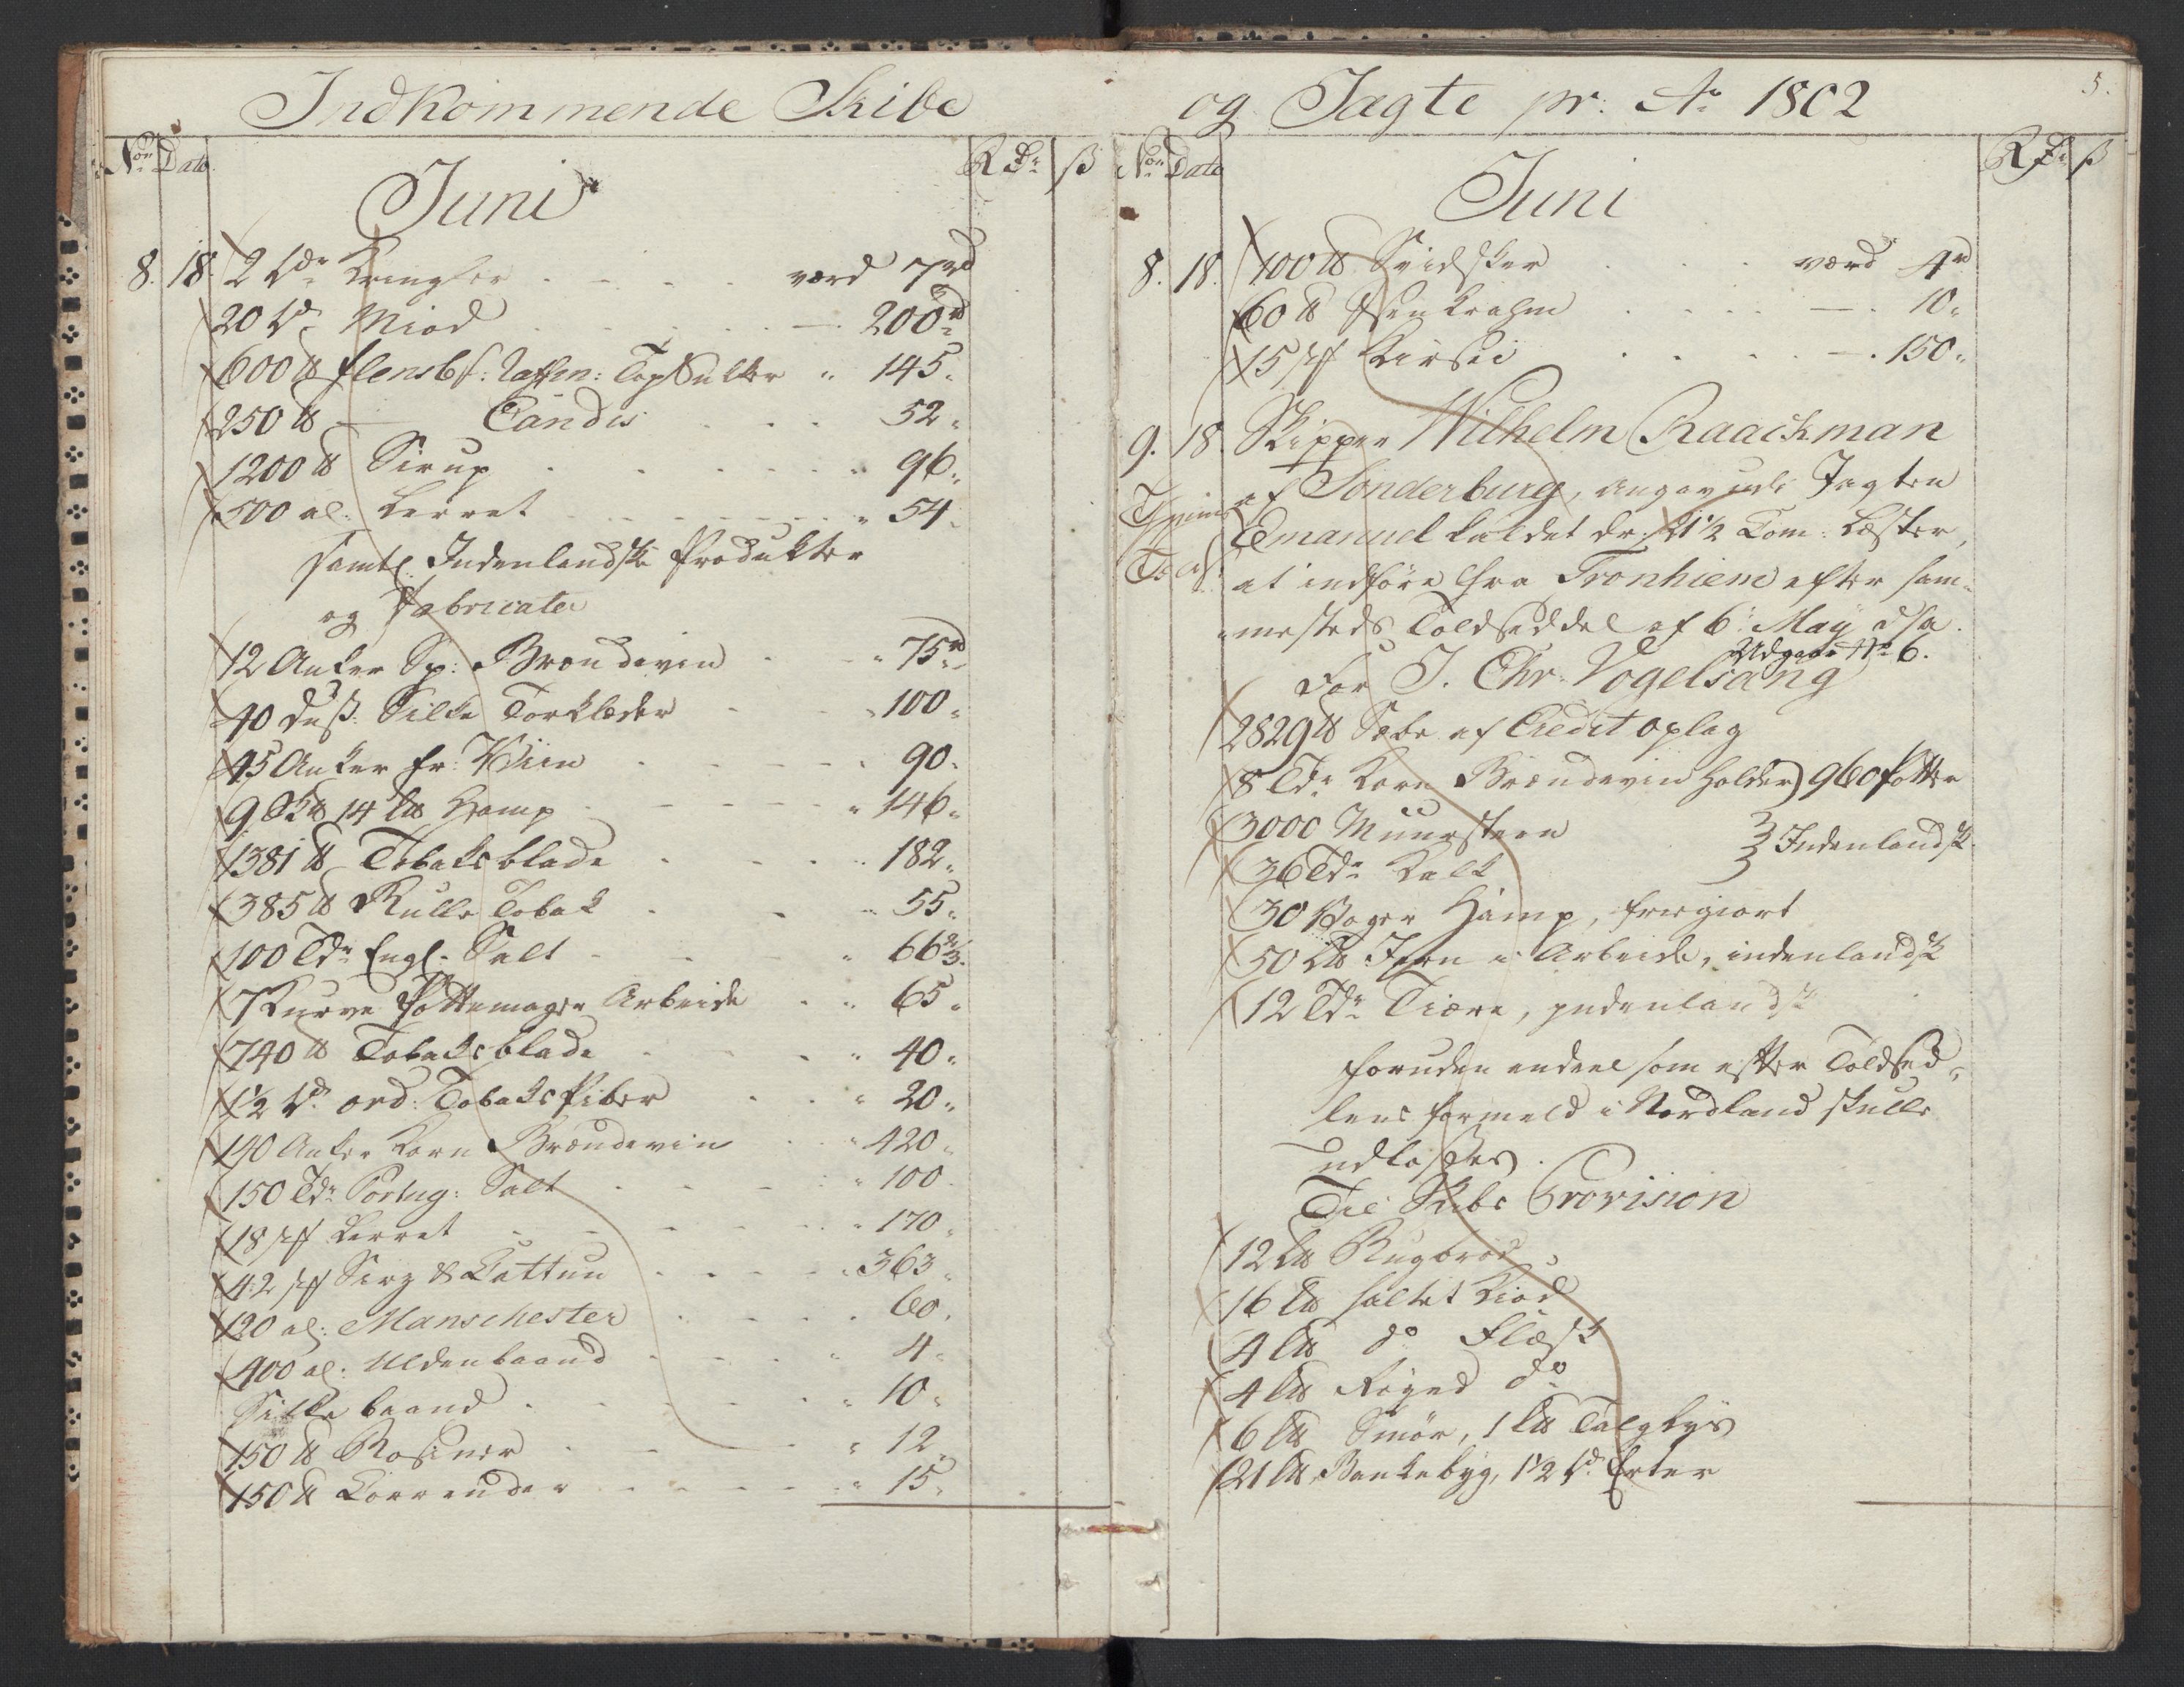 Indkommende Skibe
No. Dato. Rdr. ß
Juni
8. 18. 2 Tdr Kringler værd 7rd
20 Td. Miød 200rd
600 ℔ flensbs: Raffin: Top Sukker " 145.
250 ℔ — Candis 52.
1200 ℔ Sirup " 96.
500 al: Lerret " 54.
samtl. Indenlandske Produkter
og Fabricater
12 Anker Sp: Brændevin " 75rd
40 duß: Silke Tørklæder " 100.
45 Anker fr: Viin 90.
9 Sk℔ 14 L℔ Hamp " 146.
1381 ℔ Tobaksblade 182.
385 ℔ Rulle Tobak " 55.
100 Tdr Engl. Salt " 66 2/3.
7 Kurve Pottemager Arbeide " 65.
740 ℔ Tobaksblade " 40.
1½ Td. ord: Tobaks Piber " 20.
140 Anker Korn Brændevin " 420.
150 Tdr Portug: Salt " 100.
18 st Lerret " 170.
42 st Sirz & Cattun " 363.
120 al: Manschester 60.
400 al: Uldenbaand " 4.
Silke baand " 10.
150 ℔ Rosiner " 12.
150 ℔ Corrender " 15.
og Jagte pr: Ao 1802
5.
No. Dato Rdr. ß
Juni
8. 18. 100 ℔ Svidsker værd 4rd
60 ℔ — 10.
15 st Kirsei — 150.
9. 18. Skipper Wilhelm Raackman
af Sønderburg, angav ude Jagten
Emanuel kaldet dr. 21½ Com: Læster,
at indføre fra Tronhiem efter sam-
mesteds Toldseddel af 6. May d.a.
Udgaae No 6.
for J. Chr. Vogelsang
2829 ℔ Sebe af Credit oplag
8 Tdr Korn Brændevin holder 960 Potter
3000 Muursteen } Indenlandsk.
36 Tdr Kalk
30 Bøger Hamp, friegiort
50 L℔ Jern i Arbeide, indenlandsk
12 Tdr Tiære, indenlandsk
foruden endeel som efter Toldsed-
lens formeld i Nordland skulle
udlosses.
Til Skibs Provision
12 L℔ Rugbrød,
16 L℔ saltet Kiød
4 L℔ do Flæsk
4 L℔ Røged do
6 L℔ Smør, 1 L℔ Talglys
21 L℔ Bankebyg, 1½ Td. Erter